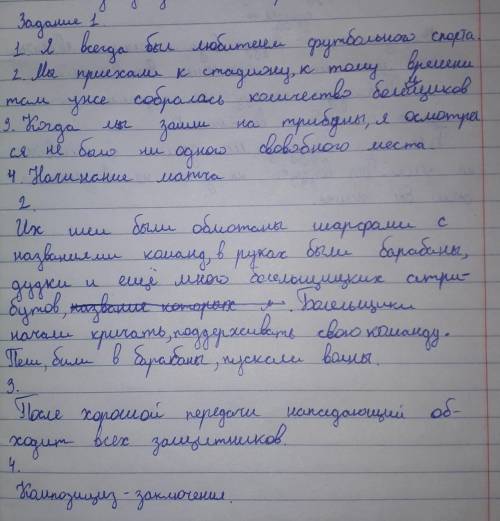 Задание 1.
1. Я всегда был любителем футбольного спорта.
2. Мы приехали к стадиону, к тому времени
там уже собралась количество болейщиков
3. Когда мы зашли на трибуны, я осмотрел
ся не было ни одного свободного места
4. Начинание матча
2.
Их шеи были обмотаны шарфами с
названиями команд, в руках были барабаны,
дудки и ещё много болельщицких атри-
бутов, название которых я. Болельщики
начали кричать, поддерживать свою команду.
Пели, били в барабаны, пускали волны.
3.
После хорошой передачи нападающий об-
ходит всех защитников.
4.
Композиция - заключения.